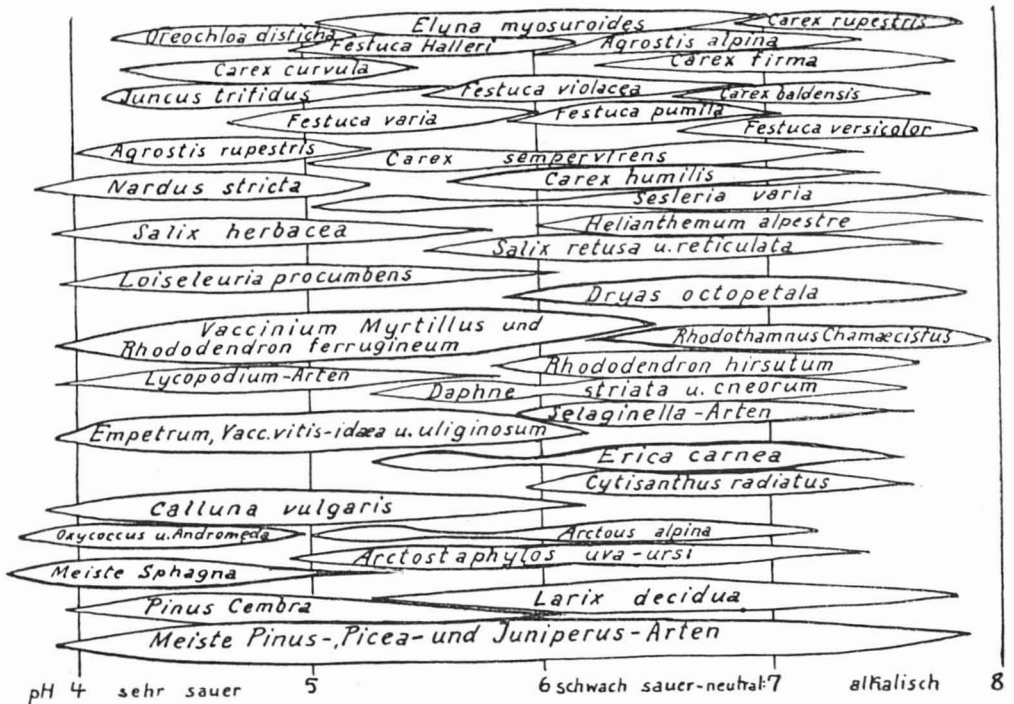 Elyna myosuroides
Carex rupestris
Oreochloa disticha
Festuca Halleri
Agrostis alpina
Carex curvula
Carex firma
Juncus trifidus
Festuca violacea
Carex baldensis
Festuca varia
Festuca pumila
Festuca versicolor
Agrostis rupestris
Carex sempervirens
Nardus stricta
Carex humilis
Sesleria varia
Salix herbacea
Helianthemum alpestre
Salix retusa u. reticulata
Loiseleuria procumbens
Dryas octopetala
Vaccinium Myrtillus und
Rhododendron ferrugineum
Rhodothamnus Chamæcistus
Rhododendron hirsutum
Lycopodium-Arten
Daphne striata u. cneorum
Selaginella-Arten
Empetrum, Vacc. vitis-idæa u. uliginosum
Erica carnea
Cytisanthus radiatus
Calluna vulgaris
Oxycoccus u. Andromeda
Arctous alpina
Arctostaphylos uva-ursi
Meiste Sphagna
Larix decidua
Pinus Cembra
Meiste Pinus-, Picea- und Juniperus-Arten
pH 4 sehr sauer 5 6 schwach sauer-neutral: 7 alkalisch 8